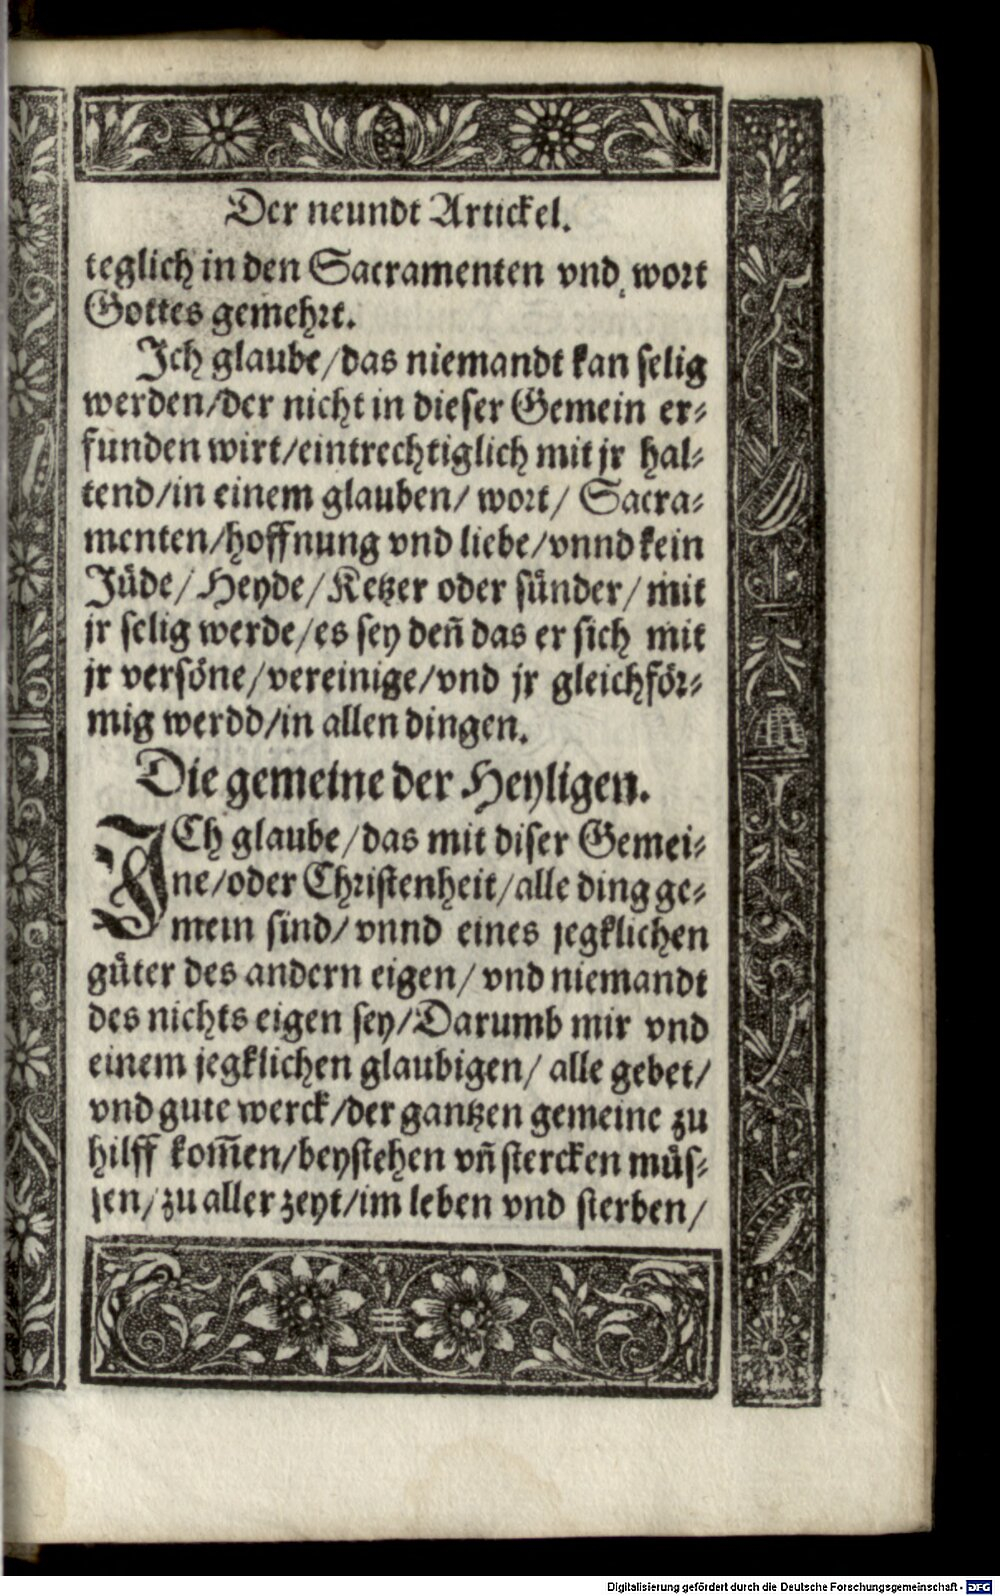 Der neundt Artickel.
teglich in den Sacramenten vnd wort
Gottes gemehrt.
Ich glaube/das niemandt kan selig
werden/der nicht in dieser Gemein er-
funden wirt/eintrechtiglich mit jr hal-
tend/in einem glauben/ wort/ Sacra-
menten/hoffnung vnd liebe/vnnd kein
Jüde/ Heyde/ Ketzer oder sünder/ mit
jr selig werde/es sey deñ das er sich mit
jr versöne/vereinige/vnd jr gleichför-
mig werdd/in allen dingen.
Die gemeine der Heyligen.
ICh glaube/das mit diser Gemei-
ne/oder Christenheit/alle ding ge-
mein sind/ vnnd eines jegklichen
güter des andern eigen/ vnd niemandt
des nichts eigen sey/Darumb mir vnd
einem jegklichen glaubigen/ alle gebet/
vnd gute werck/der gantzen gemeine zu
hilff kom̃en/beystehen vñ stercken müs-
sen/zu aller zeyt/im leben vnd sterben/
Digitalisierung gefördert durch die Deutsche Forschungsgemeinschaft - DFG